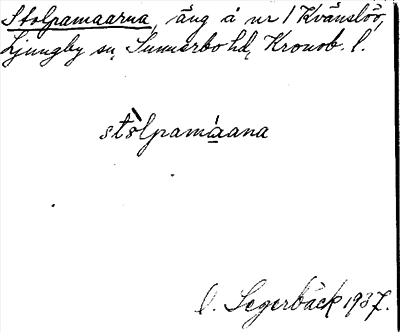 Stolpamaarna, äng å nr 1 Kvänslöv,
Ljungby sn, Sunnerbo hd, Kronob. l.
stòlpamáana
C. Segerbäck 1937.